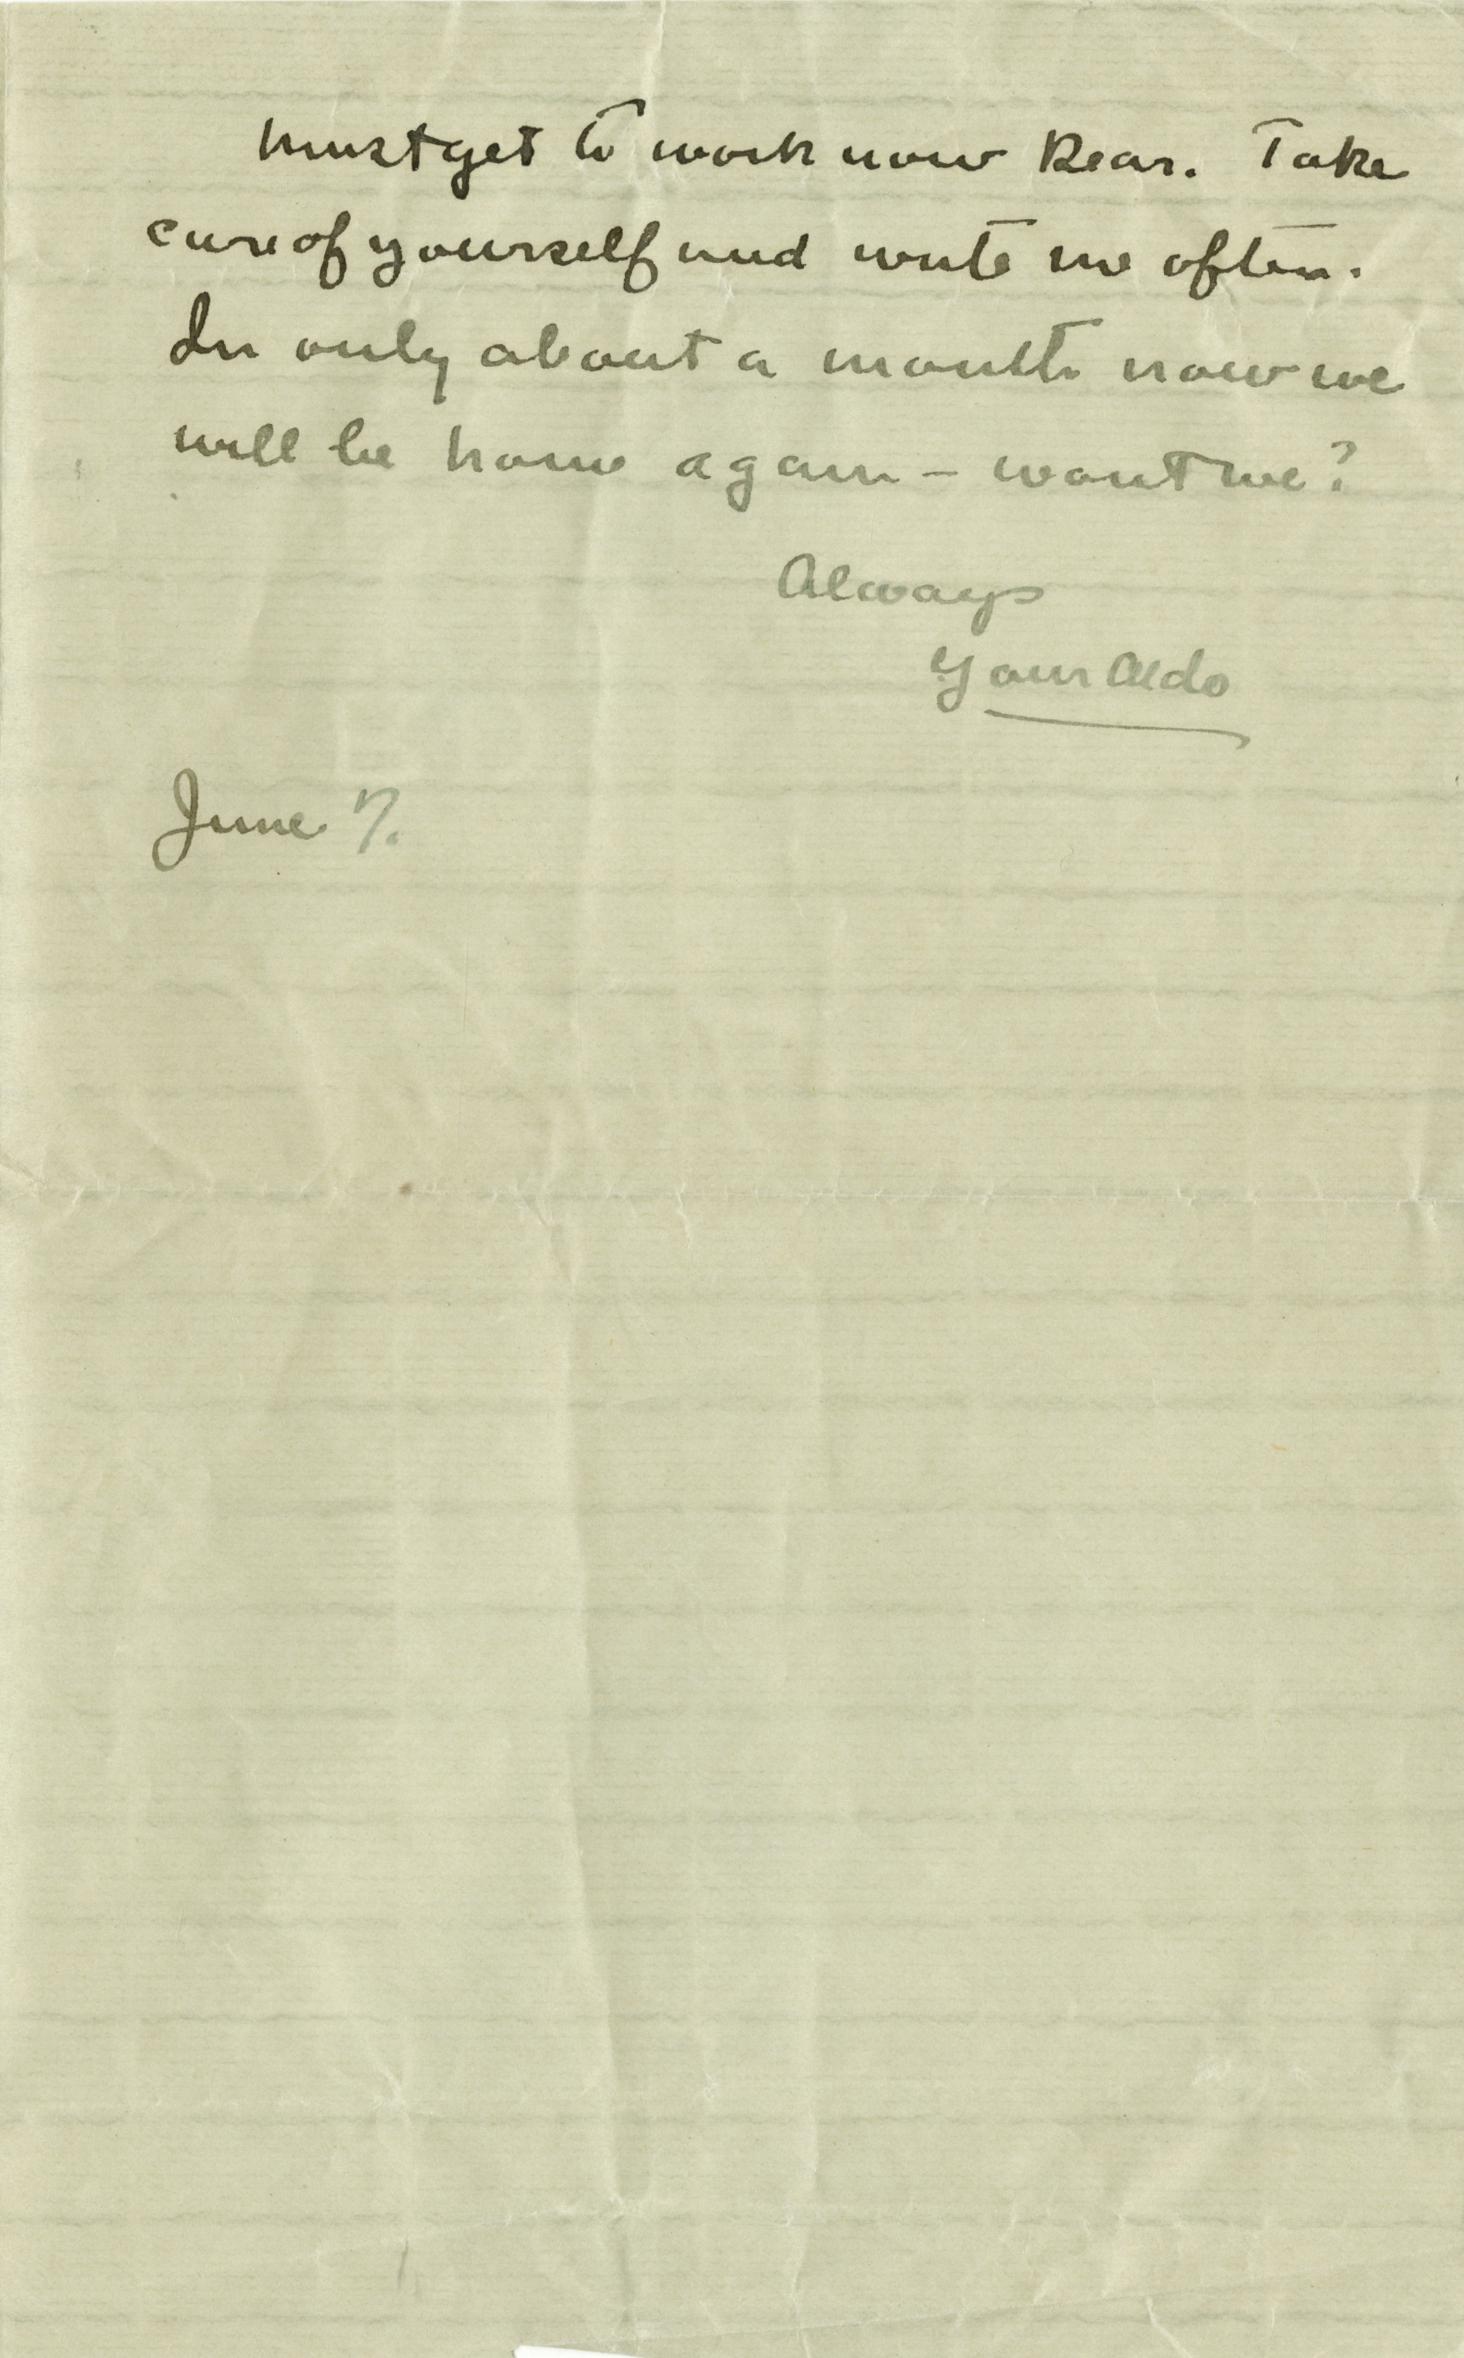 Must get to work now Dear. Take
care of yourself and write me often.
In only about a month now we
will be home again – wont we?
Always
Your Aldo
June 7.